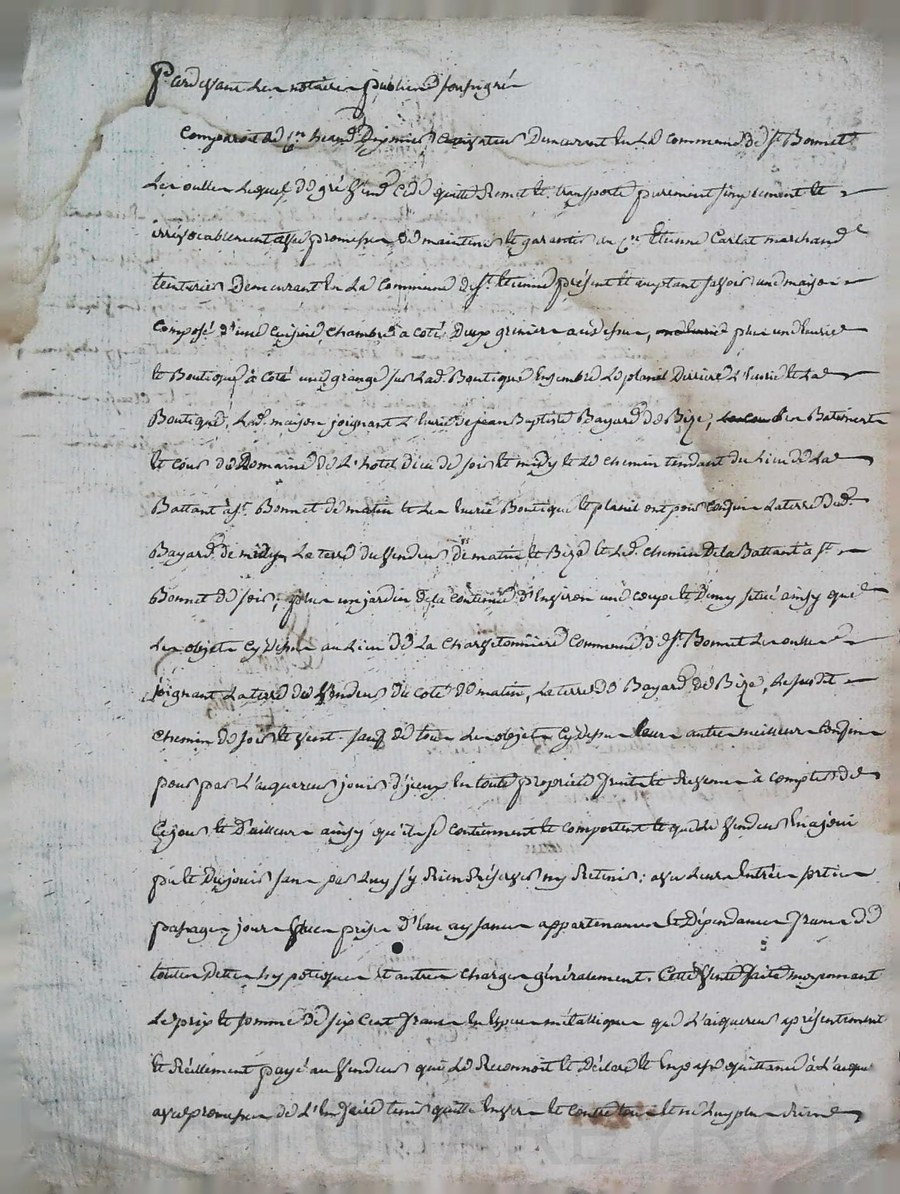 Pardevant les notaires publics soussigné
Comparoit le Cn. Jean Cultivateur Demeurant en la commune de St. Bonnet
Les oulles Lequel de gré vend Cede quitte Remet et transporte purement simplement et
irrévocablement avec promesse de maintenir et garantir au Cn. Etienne Carlat marchand
teinturier Demeurant en La Commune de St. Etienne présent et acceptant savoir une maison
Composé d'une Cuisine, Chambre a coté, Deux greniers au dessus, plus une Ecurie
et Boutique à Coté une grange sur Lad. Boutique Ensemble Le planil Derriere L'Ecurie et La
Boutique, Lad. maison joignant L'Ecurie de jean Baptiste Bayard de Bize, les Batiments
et Cour du Domaine de L'hotel Dieu de soir et midy et Le Chemin tendant du Lieu de La
Battant à St. Bonnet de matin et Les Ecurie Boutique et planil ont pour Confins La terre dud.
Bayard de midy, La terre du Vendeur de matin et Bize et Led. Chemin de la Battant à St.
Bonnet de soir; plus un jardin de la Contenue d'Environ une Coupe et Demy situé ainsy que
Les objets Cy Dessus au Lieu de La Charvetonnière Commune de St. Bonnet Les oulles
joignant La terre du Vendeur du coté de matin, La terre de Bayard de Bize, Le susdit
Chemin de soir et Vent. sauf de tous Les objets Cy Dessus leurs autres meilleurs Confins
pour par L'acquereur jouir d'iceux En toute propriété fruits et Revenus à Compter de
Ce jour et D'ailleurs ainsy qu'ils se Contiennent et Comportent et que Le Vendeur En a joui
pu et Du jouir sans par Luy s'y Rien Réserver ny Retenir: avec Leurs Entrées sorties
passages jours Vues prises D'Eau aysances appartenances et Dépendances francs de
toutes Dettes hypoteques et autres Charges généralement. Cette Vente faite moyennant
Le prix et somme de six Cent francs En Espece métallique que L'acquereur a présentement
et Réellement payé au Vendeur qui Le Reconnoit et Déclare et En passe quittance à L'acquereur
avec promesse de L'En faire tenir quitte Envers et Contre tous et ne Luy plus Rien